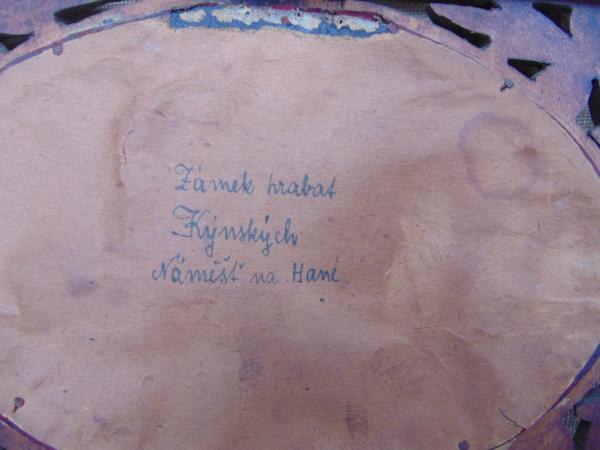 Zámek hrabat
Kýnských
Náměšť na Hané